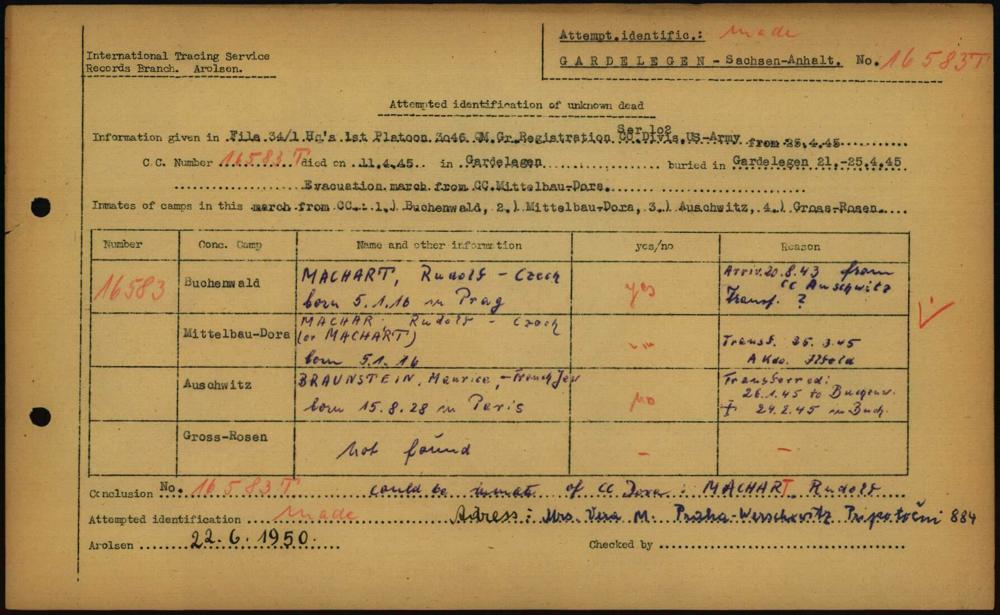 Attempt.identific.: made
International Tracing Service
Records Branch. Arolsen.
GARDELEGEN - Sachsen-Anhalt. No. 16583T
Attempted identification of unknown dead
Ser 102
Information given in File 34/1 Hq's 1st Platoon 3046 QM.Gr.Registration CO.Divis.US-Army from 25.4.45
C.C. Number 16583T died on 11.4.45. in Gardelegen buried in Gardelegen 21.-25.4.45
Evacuation march from CC.Mittelbau-Dora.
Inmates of camps in this march from CC.: 1.) Buchenwald, 2.) Mittelbau-Dora, 3.) Auschwitz, 4.) Gross-Rosen.
Number Conc. Camp Name and other information yes/no Reason
16583 Buchenwald MACHART, Rudolf - Czech yes Arriv. 20.8.43 from
born 5.1.16 in Prag CC Auschwitz
Transf. ?
Mittelbau-Dora MACHAR, Rudolf - Czech
(or MACHART) Transf. 25.3.45
born 5.1.16 A Kdo.
Auschwitz BRAUNSTEIN, Maurice, - French Jew no Transferred:
born 15.8.28 in Paris 26.1.45 to Buchenw.
† 24.2.45 in Buch.
Gross-Rosen not found - -
Conclusion No. 16583T could be inmate of CC Dora: MACHART Rudolf
Attempted identification made Adress: Mrs. Vera M. Praha-Werschowitz Pripotočni 884
Arolsen 22.6.1950. Checked by